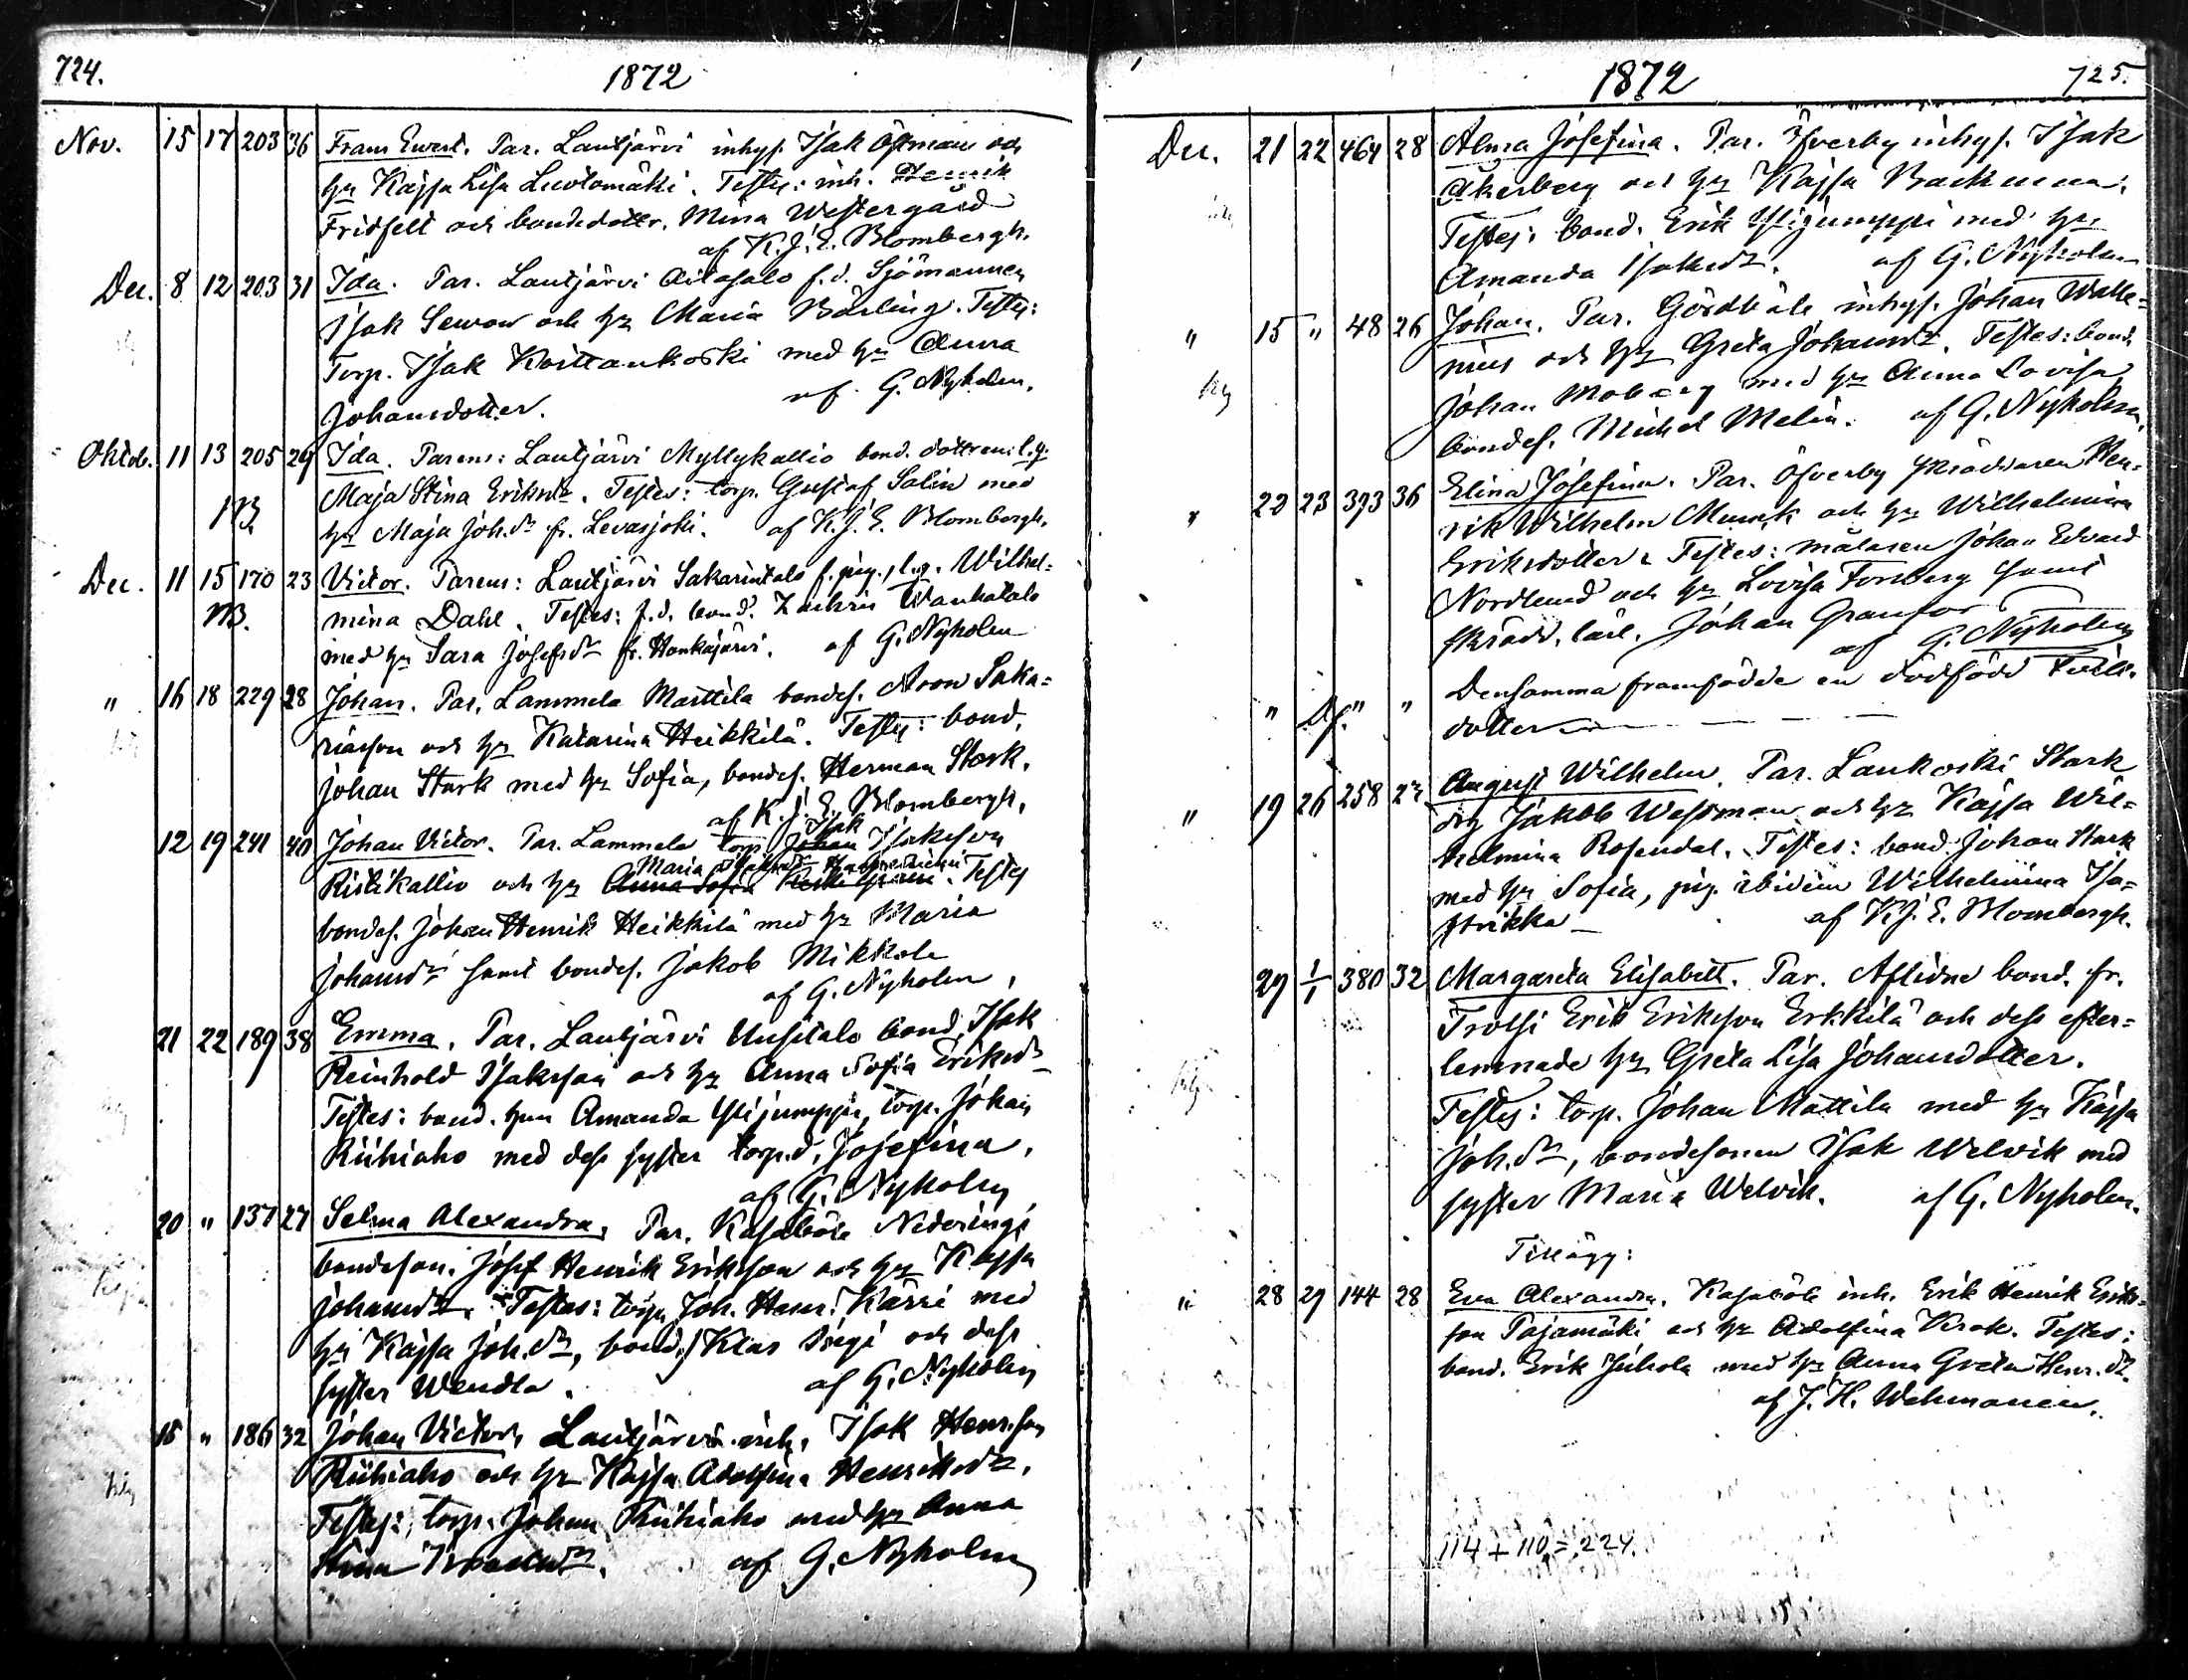 724.
1872
Nov. 15 17 203 36 Frans Ewert. Par. Lautjärvi inhys. Isak Östman och
hu Kajsa Lisa Luotomäki. Testes: inh. Henrik
Fridfelt och bondedottr. Mina Westergård
af K. J. E. Blombergh.
Dec. 8 12 203 31 Ida. Par. Lautjärvi Aitasalo f.d. Sjömannen
Isak Sewon och hu Maria Bärling. Testes:
Torp. Isak Koittankoski med hu Anna
Johansdotter. af G. Nyholm.
Oktob. 11 13 205 29 Ida. Parens: Lautjärvi Myllykallio bond. dottren: l.g.
Maja Stina Eriksdr. Testes: torp. Gustaf Salin med
hu Maja Joh.dr fr. Levasjoki. af K. J. E. Blombergh.
Dec. 11 15 170 23 Victor. Parens: Lautjärvi Sakarintalo f. pig., l.g. Wilhel=
mina Dahl. Testes: f.d. bond. Zachris Wanhatalo
med hu Sara Josefsdr fr. Honkajärvi. af G. Nyholm
" 16 18 229 28 Johan. Par. Lammela Marttila bondes. Aron Saka=
riasson och hu Katarina Heikkilä. Testes: bond.
Johan Stark med hu Sofia, bondes. Herman Stark.
af K. J. E. Blombergh.
Isak
12 19 241 40 Johan Victor. Par. Lammela torp. Johan Isaksson
Maria Isaksdr
Ristikallio och hu Anna Sofia Testes
bondes. Johan Henrik Heikkilä med hu Maria
Johansdr samt bondes. Jakob Mikkola
af G. Nyholm.
21 22 189 38 Emma. Par. Lautjärvi Uusitalo bond. Isak
Reinhold Isaksson och hu Anna Sofia Eriksdr
Testes: bond. hun Amanda Ylijumppi, torp. Johan
Riihiaho med dess syster torp.d. Josefina.
af G. Nyholm
20 " 137 27 Selma Alexandra. Par. Kasaböle Nederingi
bondeson. Josef Henrik Eriksson och hu Kajsa
Johansdr. Testes: torp. Joh. Henr. Karri med
hu Kajsa Joh.dr, bond. Klas Ingi och dess
syster Wendla. af G. Nyholm
15 " 186 32 Johan Victor. Lautjärvi inh. Isak Henr.son
Riihiaho och hu Kajsa Adolfina Henriksdr.
Testes: torp. Johan Riihiaho med hu Anna
Stina af G. Nyholm
1872
725.
Dec. 21 22 464 28 Alma Josefina. Par. Öfverby inhys. Isak
Åkerberg och hu Kajsa Backman.
Testes: bond. Erik Ylijumppi med hu
Amanda Isaksdr. af G. Nyholm
" 15 " 48 26 Johan. Par. Gördböle inhys. Johan Walle=
nius och hu Greta Johansdr. Testes: bond.
Johan Moberg med hu Anna Lovisa,
bondes. Michel Melin. af G. Nyholm.
" 22 23 393 36 Elina Josefina. Par. Öfverby skräddaren Hen=
rik Wilhelm Munck och hu Wilhelmina
Eriksdotter. Testes: målaren Johan Edvard
Nordlund och hu Lovisa Forsberg samt
skrädd. lärl. Johan Granfor
af G. Nyholm
" Df. " " Densamma framfödde en dödfödd tvill.
dotter
" 19 26 258 27 August Wilhelm. Par. Lankoski Stark
drg Jakob Westman och hu Kajsa Wil=
helmina Rosendal. Testes: bond. Johan Stark
med hu Sofia, pig. ibidem Wilhelmina Isa=
strikka af K. J. E. Blombergh.
29 1/1 380 32 Margareta Elisabett. Par. Aflidne bond. fr.
Trolsi Erik Eriksson Erkkilä och dess efter=
lemnade hu Greta Lisa Johansdotter.
Testes: torp. Johan Mattila med hu Kajsa
Joh.dr, bondesonen Isak Welvik med
syster Maria Welvik. af G. Nyholm.
Tillägg:
" 28 29 144 28 Eva Alexandra. Kasaböle inh. Erik Henrik Eriks=
son Pajamäki och hu Adolfina Krok. Testes:
bond. Erik Juhola med hu Anna Greta Henr.dr.
af J. H. Wehmanen.
114 + 110 = 224.